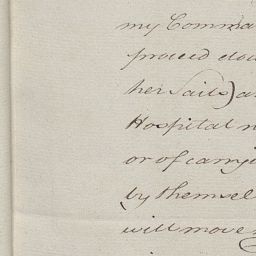 my Comma
proceed dow
her Sails) a
Hospital
or of carryi
by themsel
will move